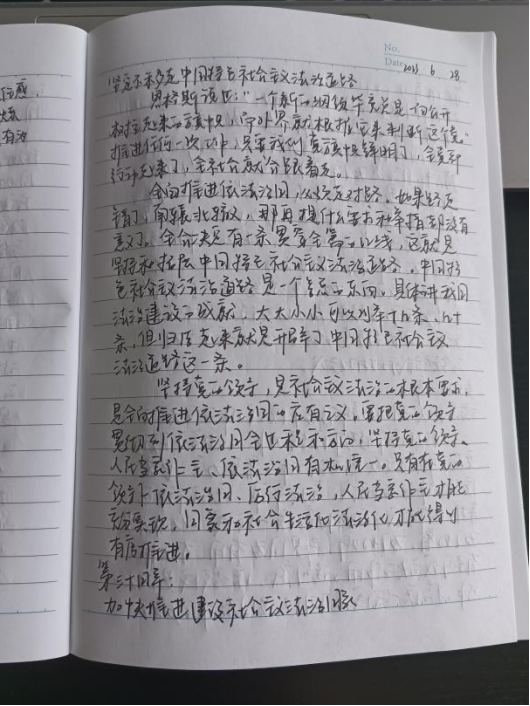 No.
Date 2023 6 28
坚定不移走中国特色社会主义法治道路
恩格斯说过:"一个新的纲领毕竟总是一面公开
树立起来的旗帜,而外界就根据它来判断这个党。"
推进任何一次工作,只要我们党旗帜鲜明了,全党都
行动起来了,全社会就会跟着走。
全面推进依法治国,必须走对路。如果路走
错了,南辕北辙,那再提什么要求和举措都没有
意义了。全会决定有一条贯穿全篇的红线,这就是
坚持和拓展中国特色社会主义法治道路。中国特
色社会主义法治道路是一个管总的东西。具体讲我国
法治建设的成就,大大小小可以列举十几条、几十
条,但归结起来就是开辟了中国特色社会主义
法治道路这一条。
坚持党的领导,是社会主义法治的根本要求,
是全面推进依法治国的应有之义。要把党的领导
贯彻到依法治国全过程和方面,坚持党的领导、
人民当家作主、依法治国有机统一。只有在党的
领导下依法治国、厉行法治,人民当家作主才能
充分实现,国家和社会生活的法治化才能得以
有序推进。
第三十四年:
加快推进建设社会主义法治国家
位感
有效